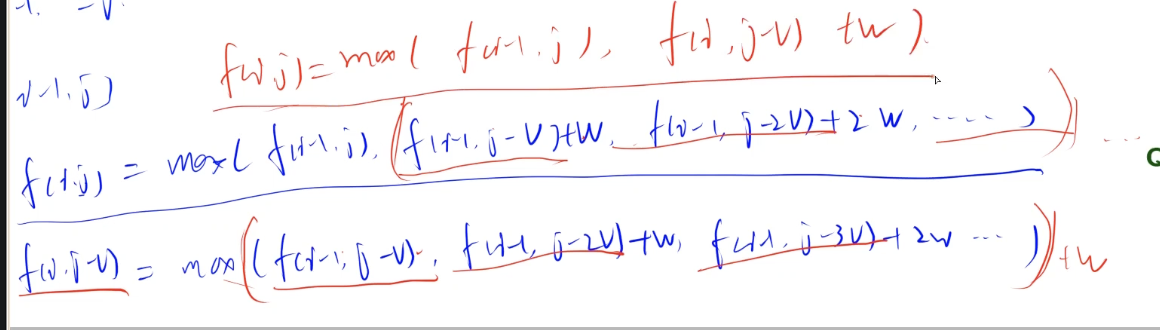 f(i,j) = max( f(i-1,j), f(i,j-v) +w ).
i-1,j)
f(i,j) = max( f(i-1,j), f(i-1,j-v)+w, f(i-1,j-2v)+2w, ..... ) ...
f(i,j-v) = max( f(i-1,j-v), f(i-1,j-2v)+w, f(i-1,j-3v)+2w ... ) +w